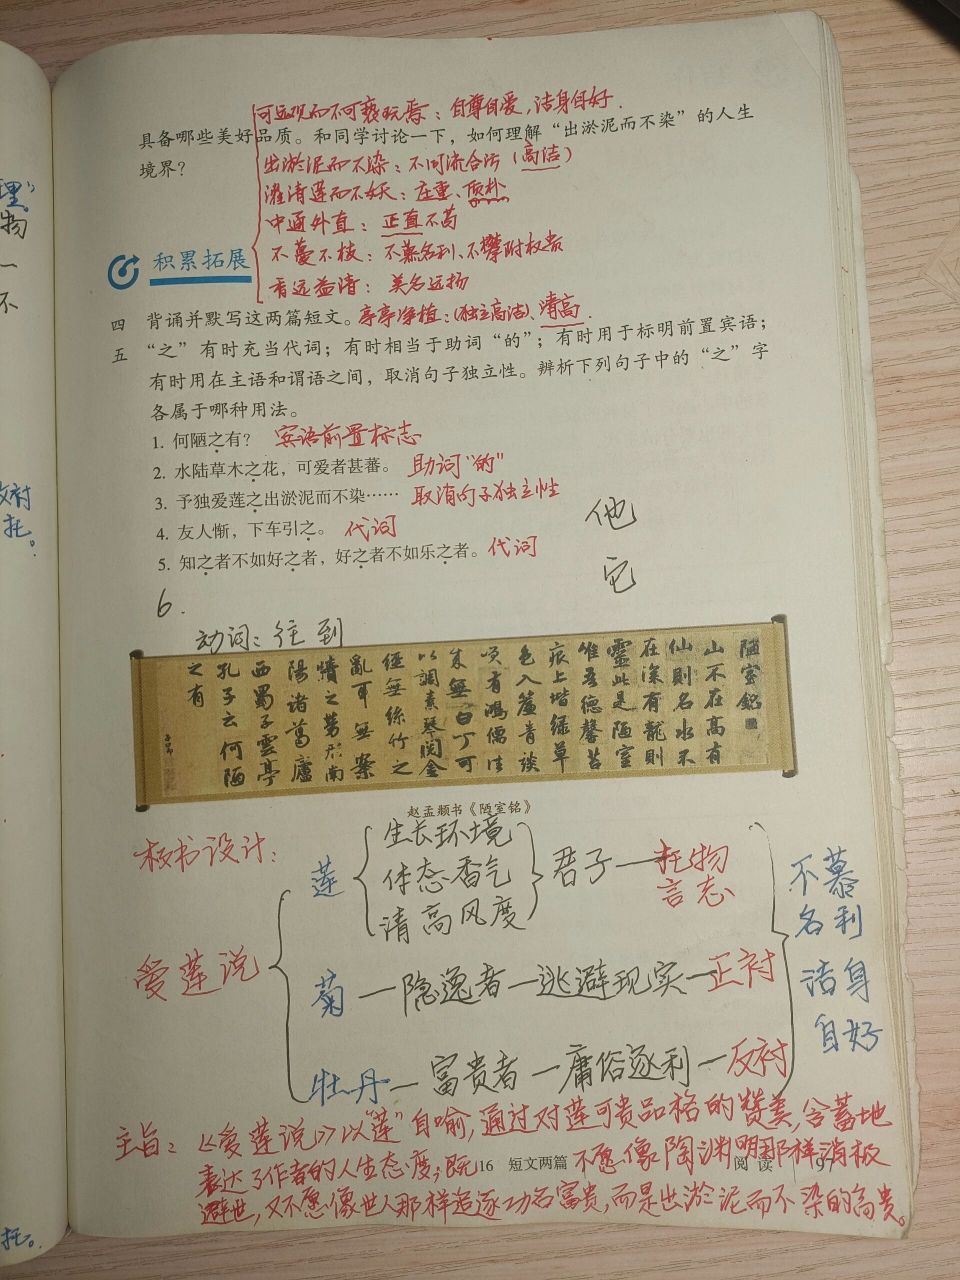 可远观而不可亵玩焉：自尊自爱，洁身自好.
具备哪些美好品质。和同学讨论一下，如何理解“出淤泥而不染”的人生
境界？
出淤泥而不染：不同流合污（高洁）
濯清涟而不妖：庄重、质朴
中通外直：正直不苟
不蔓不枝：不慕名利、不攀附权贵
香远益清：美名远扬
积累拓展
四 背诵并默写这两篇短文。亭亭净植：(独立高洁)、清高.
五 “之”有时充当代词；有时相当于助词“的”；有时用于标明前置宾语；
有时用在主语和谓语之间，取消句子独立性。辨析下列句子中的“之”字
各属于哪种用法。
1. 何陋之有？ 宾语前置标志
2. 水陆草木之花，可爱者甚蕃。 助词“的”
3. 予独爱莲之出淤泥而不染…… 取消句子独立性
4. 友人惭，下车引之。 代词
5. 知之者不如好之者，好之者不如乐之者。代词
他
它
6.
动词：往 到
陋室銘
山不在高有
仙則名水不
在深有龍則
靈此是陋室
惟吾德馨苔
痕上堦綠草
色入簾青談
笑有鴻儒往
來無白丁可
以調素琴閱金
經無絲竹之
亂耳無案
牘之勞形南
陽諸葛廬
西蜀子雲亭
孔子云何陋
之有
赵孟頫书《陋室铭》
板书设计：
爱莲说
莲
生长环境
体态香气
清高风度
君子—托物
言志
菊—隐逸者—逃避现实—正衬
牡丹—富贵者—庸俗逐利—反衬
不慕
名利
洁身
自好
主旨：《爱莲说》以“莲”自喻，通过对莲可贵品格的赞美，含蓄地
表达了作者的人生态度；既不愿像陶渊明那样消极
16 短文两篇 阅读 97
避世，又不愿像世人那样追逐功名富贵，而是出淤泥而不染的高贵。
理”
物
一
不
衬
托。
托。